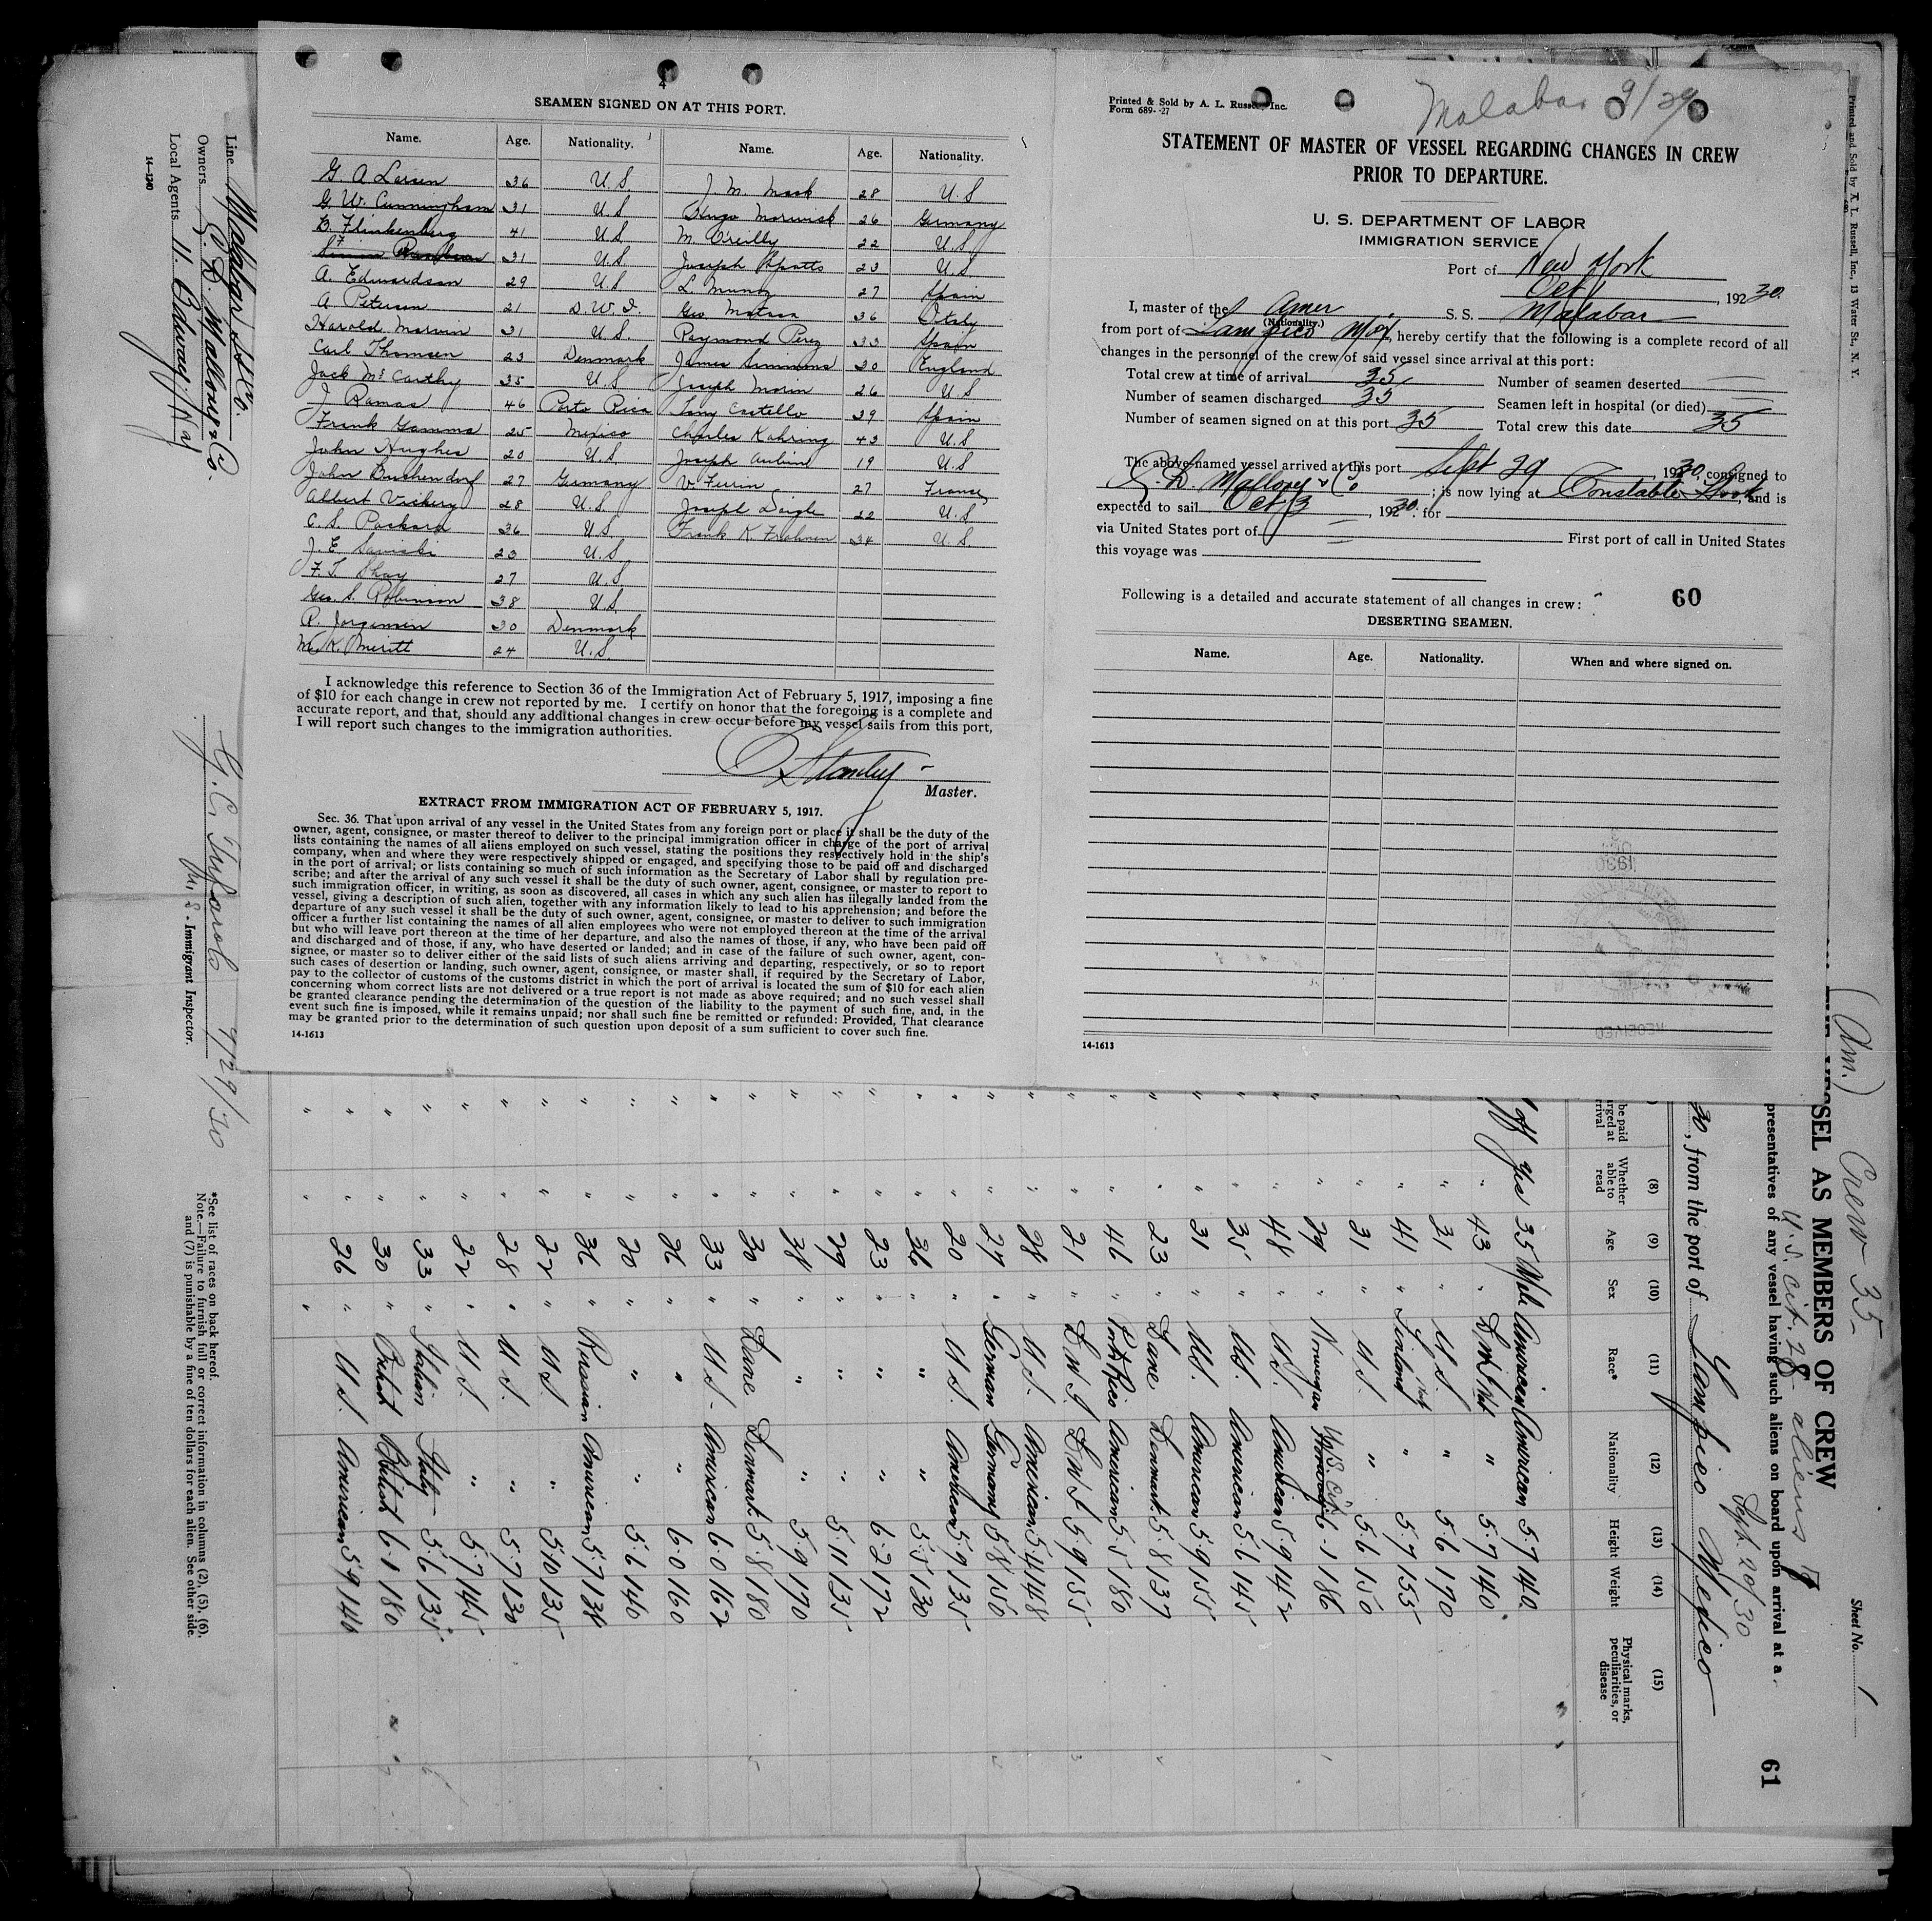 4
SEAMEN SIGNED ON AT THIS PORT.
Name. Age. Nationality. Name. Age. Nationality.
G. A. Larsen 36 U.S. J. M. Mook 28 U.S
G. W. Cunningham 31 U.S Hugo 26 Germany
B. Flinkenberg 41 U.S. M. O'reilly 22 U.S
31 U.S. Joseph 23 U.S.
A. Edwardson 29 U.S L. Munoz 27 Spain
A. Petersen 21 D.W.I. Geo. Matson 36 Italy
Harold Marvin 31 U.S. Raymond Perez 33 Spain
Carl Thomsen 23 Denmark James Simmons 30 England
Jack McCarthy 35 U.S Joseph Morin 26 U S
J Ramas 46 Porto Rico Tony Costello 39 Spain
Frank Gamma 25 Mexico Charles Kahring 43 U.S.
John Hughes 20 U.S. Joseph Aubin 19 U.S
John Bushendorf 27 Germany V Ferrin 27 France
Albert Vickery 28 U.S Joseph Daigle 22 U.S
C. S. Packard 36 U.S. Frank K Frohnen 34 U.S.
J. E. 23 U.S
F. T. Shay 27 U.S.
Geo. S. Robinson 38 U.S.
R. Jorgensen 30 Denmark
M. K. Meritt 24 U.S.
I acknowledge this reference to Section 36 of the Immigration Act of February 5, 1917, imposing a fine
of $10 for each change in crew not reported by me. I certify on honor that the foregoing is a complete and
accurate report, and that, should any additional changes in crew occur before my vessel sails from this port,
I will report such changes to the immigration authorities.
Stanley
Master.
EXTRACT FROM IMMIGRATION ACT OF FEBRUARY 5, 1917.
Sec. 36. That upon arrival of any vessel in the United States from any foreign port or place it shall be the duty of the
owner, agent, consignee, or master thereof to deliver to the principal immigration officer in charge of the port of arrival
lists containing the names of all aliens employed on such vessel, stating the positions they respectively hold in the ship's
company, when and where they were respectively shipped or engaged, and specifying those to be paid off and discharged
in the port of arrival; or lists containing so much of such information as the Secretary of Labor shall by regulation pre-
scribe; and after the arrival of any such vessel it shall be the duty of such owner, agent, consignee, or master to report to
such immigration officer, in writing, as soon as discovered, all cases in which any such alien has illegally landed from the
vessel, giving a description of such alien, together with any information likely to lead to his apprehension; and before the
departure of any such vessel it shall be the duty of such owner, agent, consignee, or master to deliver to such immigration
officer a further list containing the names of all alien employees who were not employed thereon at the time of the arrival
but who will leave port thereon at the time of her departure, and also the names of those, if any, who have been paid off
and discharged and of those, if any, who have deserted or landed; and in case of the failure of such owner, agent, con-
signee, or master so to deliver either of the said lists of such aliens arriving and departing, respectively, or so to report
such cases of desertion or landing, such owner, agent, consignee, or master shall, if required by the Secretary of Labor,
pay to the collector of customs of the customs district in which the port of arrival is located the sum of $10 for each alien
concerning whom correct lists are not delivered or a true report is not made as above required; and no such vessel shall
be granted clearance pending the determination of the question of the liability to the payment of such fine, and, in the
event such fine is imposed, while it remains unpaid; nor shall such fine be remitted or refunded: Provided, That clearance
may be granted prior to the determination of such question upon deposit of a sum sufficient to cover such fine.
14-1613
Printed & Sold by A. L. Russell, Inc.
Form 689--27
Malabar 9/29
STATEMENT OF MASTER OF VESSEL REGARDING CHANGES IN CREW
PRIOR TO DEPARTURE.
U. S. DEPARTMENT OF LABOR
IMMIGRATION SERVICE
Port of New York
Oct 1, 1930
I, master of the Amer (Nationality.) S. S. Malabar
from port of Tampico Mex, hereby certify that the following is a complete record of all
changes in the personnel of the crew of said vessel since arrival at this port:
Total crew at time of arrival 35 Number of seamen deserted
Number of seamen discharged 35 Seamen left in hospital (or died)
Number of seamen signed on at this port 35 Total crew this date 35
The above-named vessel arrived at this port Sept 29, 1930, consigned to
C. D. Mallory & Co; is now lying at Constable Hook, and is
expected to sail Oct 3, 1930. for
via United States port of First port of call in United States
this voyage was
Following is a detailed and accurate statement of all changes in crew: 60
DESERTING SEAMEN.
Name. Age. Nationality. When and where signed on.
14-1613
Printed and Sold by A. L. Russell, Inc., 13 Water St., N. Y.
Line Malabar SS Co.
Owners C. D. Mallory & Co.
Local Agents 11 Bdway N.Y
14—1240
9/29/30
Immigrant Inspector.
*See list of races on back hereof.
Note.—Failure to furnish full or correct information in columns (2), (5), (6),
and (7) is punishable by a fine of ten dollars for each alien. See other side.
Sheet No. 1
(Am.) Crew 35
VESSEL AS MEMBERS OF CREW
U.S. cit. 28 aliens 7
presentatives of any vessel having such aliens on board upon arrival at a
Sept. 29/30
30, from the port of Tampico Mexico
61
be paid
arged at
rrival
(8) Whether able to read
(9) Age
(10) Sex
(11) Race*
(12) Nationality
(13) Height
(14) Weight
(15) Physical marks, peculiarities, or disease
off Yes 35 Male American American 5.7 140
" 43 " " 5.7 140
" 31 " U.S. " 5.6 170
" 41 " Finland " 5.7 155
" 31 " U.S. " 5.6 150
" 29 " Norwegian U.S. Cit. 6-1 186
" 48 " U.S. American 5.9 142
" 35 " U.S. American 5.6 145
" 31 " U.S. American 5.9 155
" 23 " Dane Denmark 5.8 137
" 46 " Porto Rico American 5.5 180
" 21 " D W I D W I 5.9 155
" 28 " U.S. American 5.4 148
" 27 " German Germany 5.8 150
" 20 " U.S. American 5.9 135
" 36 " " " 5.5 130
" 23 " " " 6.2 172
" 29 " " " 5.11 135
" 38 " " " 5.9 170
" 30 " Dane Denmark 5.8 180
" 33 " U.S. American 6.0 162
" 26 " " " 6.0 160
" 20 " " " 5.6 140
" 36 " Russian American 5.7 138
" 22 " U.S. " 5.10 135
" 28 " U.S. " 5.7 130
" 22 " U.S. " 5.7 145
" 33 " Italian Italy 5.6 135
" 30 " British British 6.1 180
" 26 " U.S. American 5.9 140